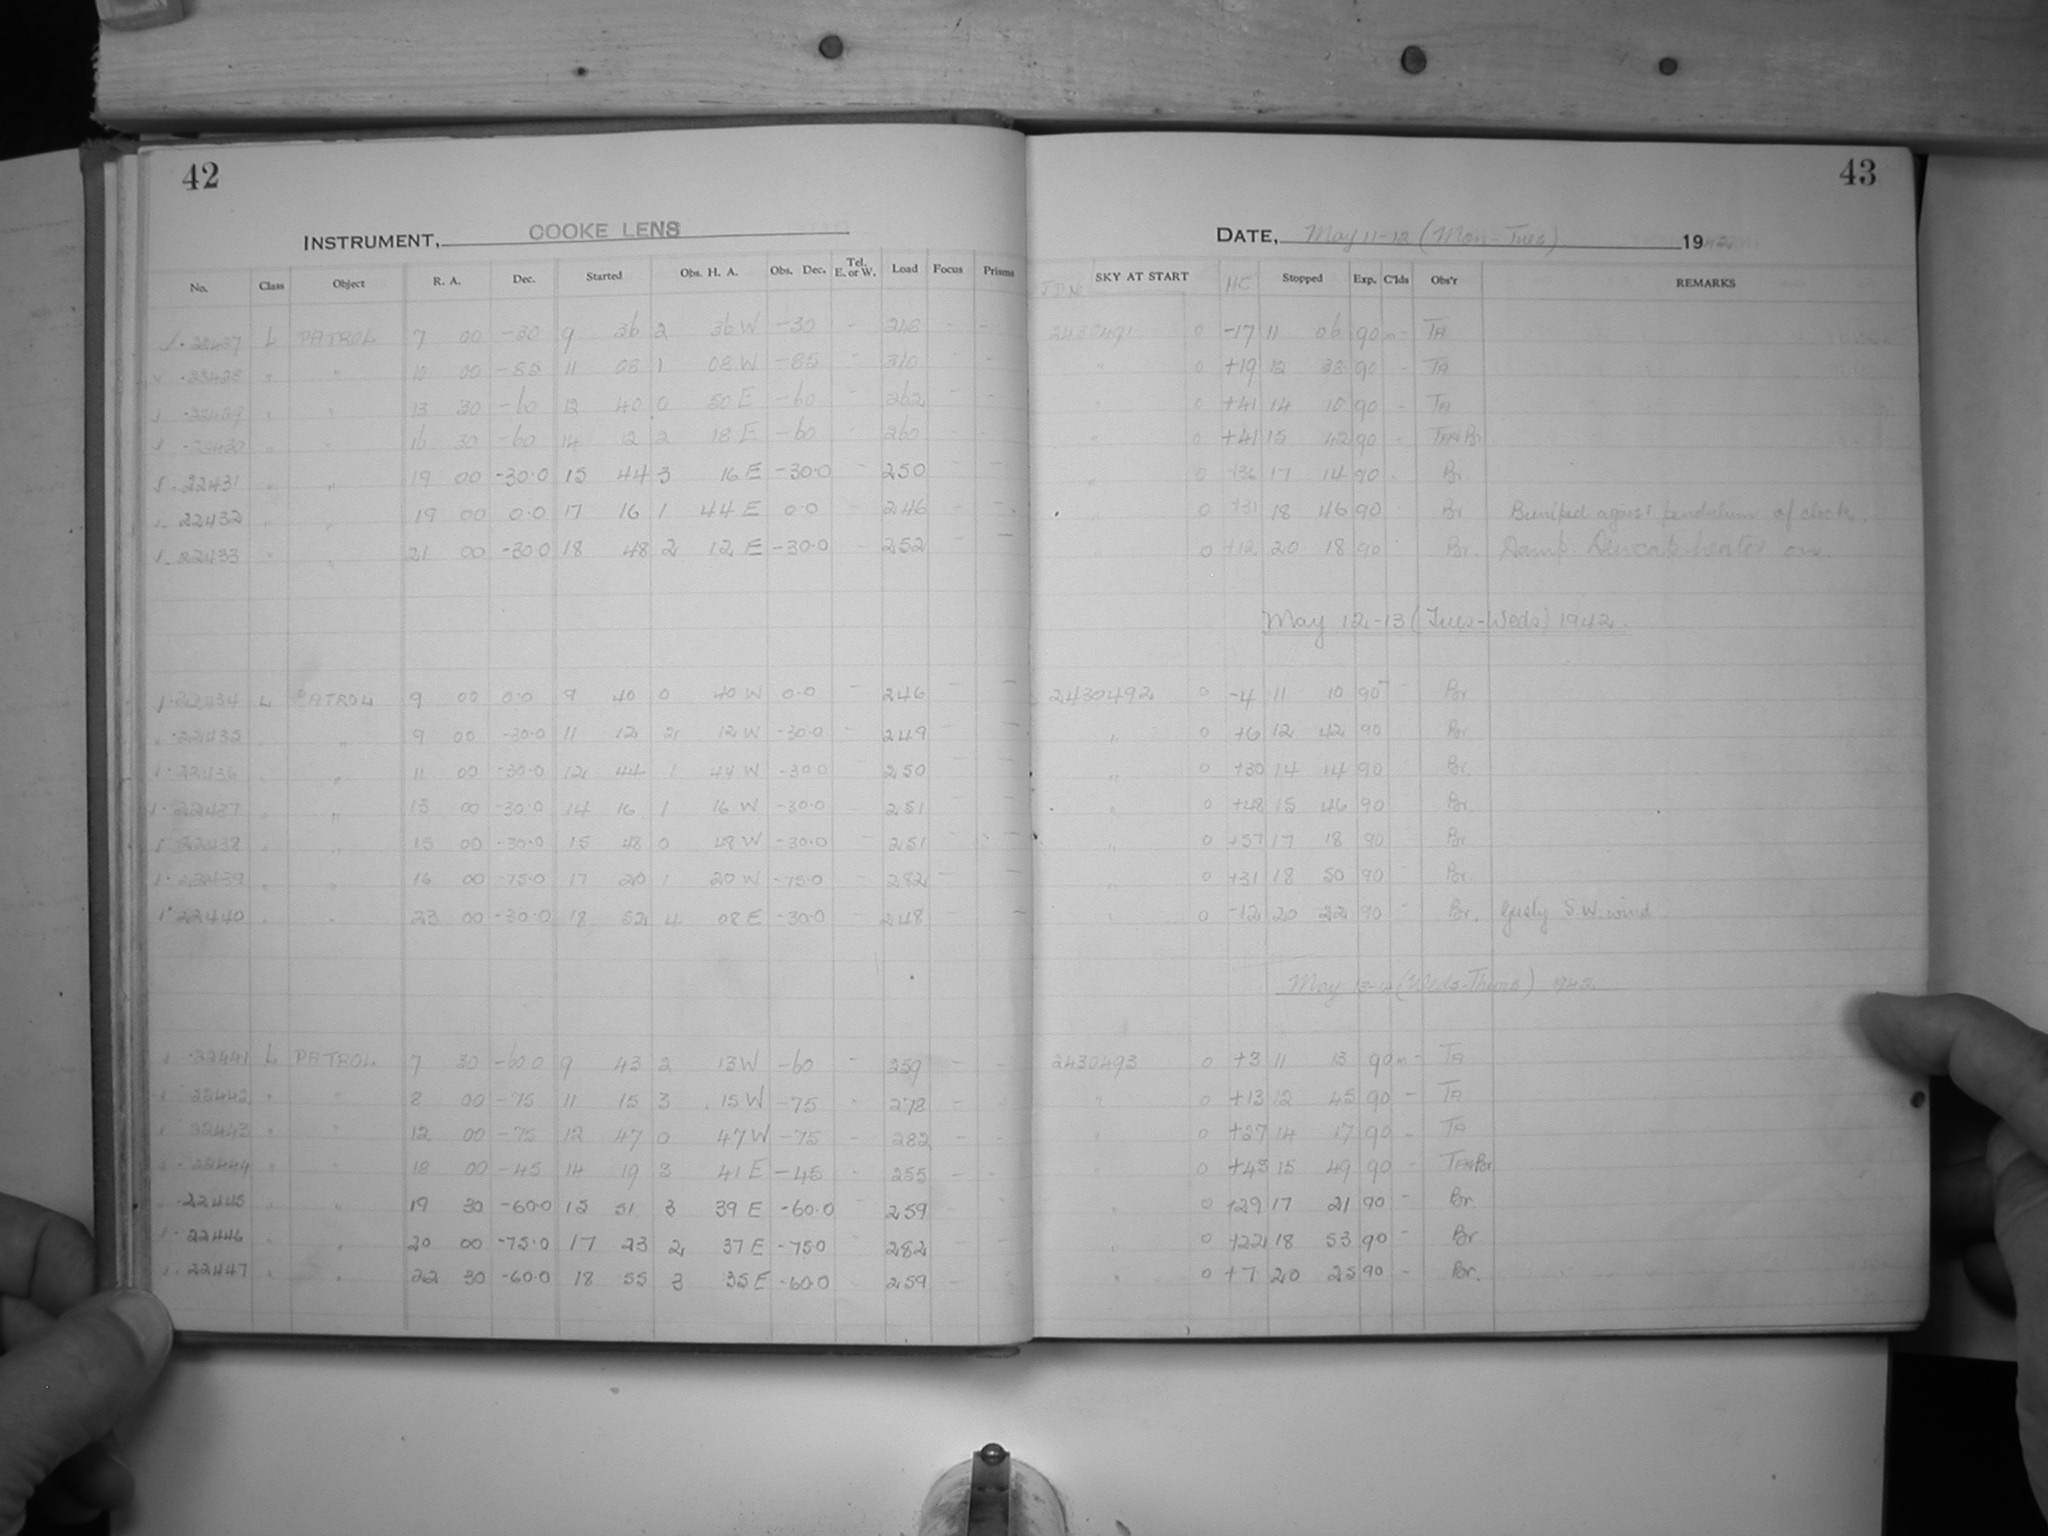 42
43
INSTRUMENT, COOKE LENS
DATE, May 11-12 (Mon-Tues) 1942
No. Class Object R. A. Dec. Started Obs. H. A. Obs. Dec. Tel. E. or W. Load Focus Prisms SKY AT START HC Stopped Exp. C'lds Obs'r REMARKS
L PATROL 7 00 -30 9 36 2 36 W -30 - 248 - - 2430491 0 -17 11 06 90m - TA
22428 " " 10 00 -85 11 08 1 08 W -85 - 310 - - " 0 +19 12 38 90 - TA
22429 " " 13 30 -60 12 40 0 50 E -60 - 262 - - " 0 +41 14 10 90 - TA
22430 " " 16 30 -60 14 12 2 18 E -60 - 260 - - " 0 +41 15 42 90 - TA+Br
22431 " " 19 00 -30.0 15 44 3 16 E -30.0 - 250 - - " 0 +36 17 14 90 - Br.
22432 " " 19 00 0.0 17 16 1 44 E 0.0 - 246 - - " 0 +31 18 46 90 Br Bumped against pendulum of clock.
22433 " " 21 00 -30.0 18 48 2 12 E -30.0 - 252 - - " 0 +12 20 18 90 - Br. Damp. Dewcap heater on.
May 12-13 (Tues-Weds) 1942.
22434 L PATROL 9 00 0.0 9 40 0 40 W 0.0 - 246 - - 2430492 0 -4 11 10 90 - Br
22435 " 9 00 -30.0 11 12 2 12 W -30.0 - 249 - - " 0 +6 12 42 90 Br
22436 " 11 00 -30.0 12 44 1 44 W -30.0 - 250 - - " 0 +30 14 14 90 Br.
22437 " 13 00 -30.0 14 16 1 16 W -30.0 - 251 - - " 0 +48 15 46 90 Br
22438 " 15 00 -30.0 15 48 0 48 W -30.0 - 251 - - " 0 +57 17 18 90 Br.
22439 " " 16 00 -75.0 17 20 1 20 W -75.0 - 282 - - " 0 +31 18 50 90 - Br.
22440 " " 23 00 -30.0 18 52 4 08 E -30.0 - 248 - - " 0 -12 20 22 90 - Br. Gusty S.W. wind
May 13-14 (Weds-Thurs) 1942
22441 L PATROL 7 30 -60.0 9 43 2 13 W -60 - 259 - - 2430493 0 +3 11 13 90m - TA
22442 " " 8 00 -75 11 15 3 15 W -75 - 278 - - " 0 +13 12 45 90 - TA
22443 " " 12 00 -75 12 47 0 47 W -75 - 282 - - " 0 +27 14 17 90 - TA
22444 " " 18 00 -45 14 19 3 41 E -45 - 255 - - " 0 +43 15 49 90 - TA+Br
22445 " " 19 30 -60.0 15 51 3 39 E -60.0 - 259 - " 0 +29 17 21 90 - Br.
22446 " 20 00 -75.0 17 23 2 37 E -75.0 - 282 - " 0 +22 18 53 90 - Br
22447 " " 22 30 -60.0 18 55 3 35 E -60.0 - 259 - " 0 +7 20 25 90 - Br.